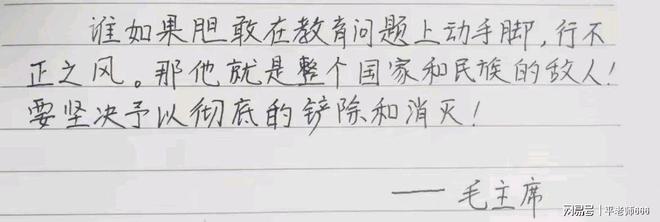 谁如果胆敢在教育问题上动手脚,行不
正之风。那他就是整个国家和民族的敌人!
要坚决予以彻底的铲除和消灭!
——毛主席
网易号 | 平老师666